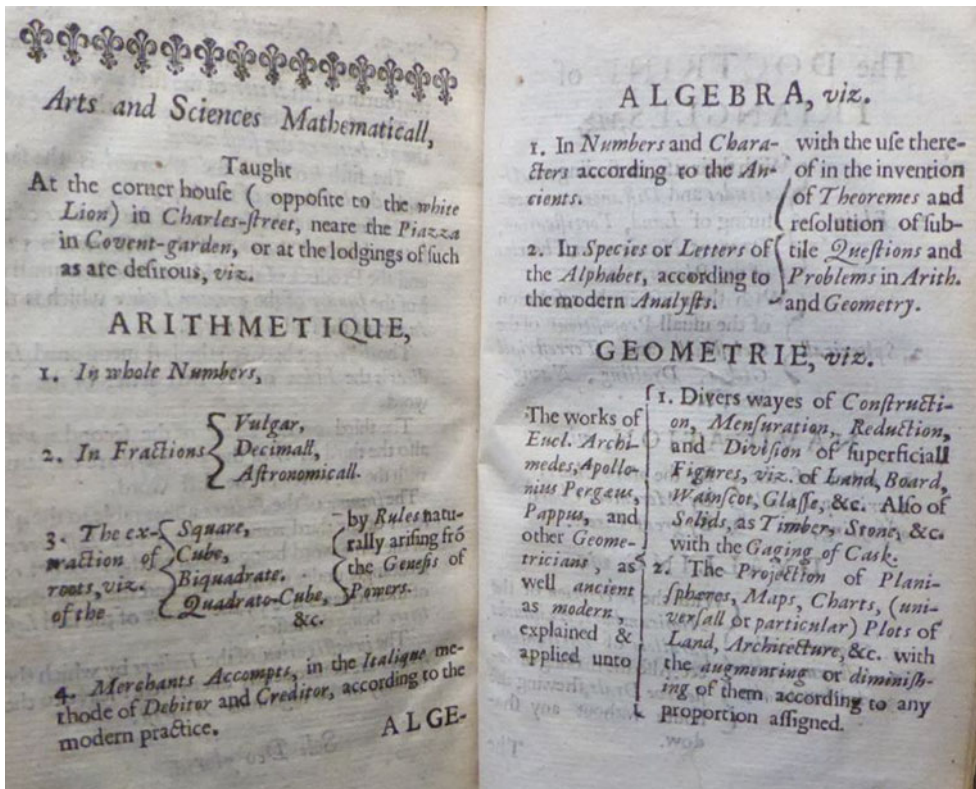 Arts and Sciences Mathematicall,
Taught
At the corner houſe ( oppoſite to the white
Lion) in Charles-ſtreet, neare the Piazza
in Covent-garden, or at the lodgings of ſuch
as are deſirous, viz.
ARITHMETIQUE,
1. In whole Numbers,
2. In Fractions
Vulgar,
Decimall,
Aſtronomicall.
3. The ex-
traction of
roots, viz.
of the
Square,
Cube,
Biquadrate.
Quadrato-Cube,
&c.
by Rules natu-
rally ariſing frõ
the Geneſis of
Powers.
4. Merchants Accompts, in the Italique me-
thode of Debitor and Creditor, according to the
modern practice.
ALGE-
ALGEBRA, viz.
1. In Numbers and Chara-
cters according to the An-
cients.
2. In Species or Letters of
the Alphabet, according to
the modern Analyſts.
with the uſe there-
of in the invention
of Theoremes and
reſolution of ſub-
tile Queſtions and
Problems in Arith.
and Geometry.
GEOMETRIE, viz.
The works of
Eucl. Archi-
medes, Apollo-
nius Pergæus,
Pappus, and
other Geome-
tricians, as
well ancient
as modern,
explained &
applied unto
1. Divers wayes of Conſtructi-
on, Menſuration, Reduction,
and Diviſion of ſuperficiall
Figures, viz. of Land, Board,
Wainſcot, Glaſſe, &c. Alſo of
Solids, as Timber, Stone, &c.
with the Gaging of Cask.
2. The Projection of Plani-
ſpheres, Maps, Charts, (uni-
verſall or particular) Plots of
Land, Architecture, &c. with
the augmenting or diminiſh-
ing of them according to any
proportion aſſigned.